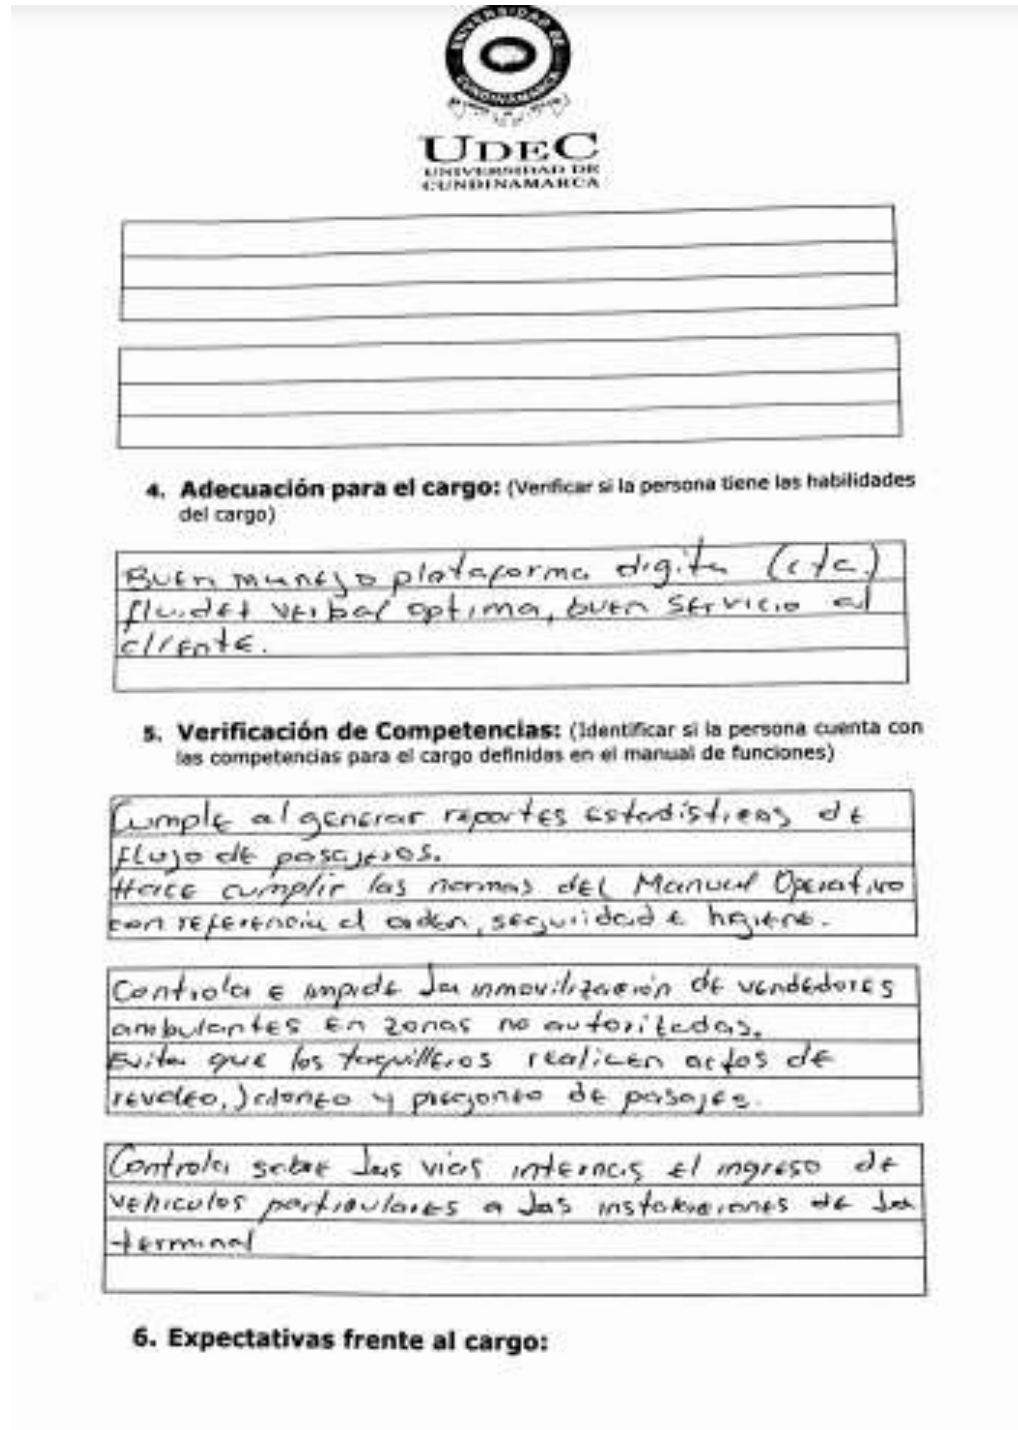 UNIVERSIDAD DE
CUNDINAMARCA
UDEC
UNIVERSIDAD DE
CUNDINAMARCA
4. Adecuación para el cargo: (Verificar si la persona tiene las habilidades
del cargo)
Buen manejo plataforma digita (etc.)
fluidez verbal optima, buen servicio al
cliente.
5. Verificación de Competencias: (Identificar si la persona cuenta con
las competencias para el cargo definidas en el manual de funciones)
Cumple al generar reportes estadísticas de
flujo de pasajeros.
Hace cumplir las normas del Manual Operativo
con referencia al orden, seguridad e higiene.
Controla e impide la inmovilización de vendedores
ambulantes en zonas no autorizadas.
Evita que los taquilleros realicen actos de
, jaloneo y pregoneo de pasajes.
Controla sobre las vias internas el ingreso de
vehiculos particulares a las instalaciones de la
terminal
6. Expectativas frente al cargo: